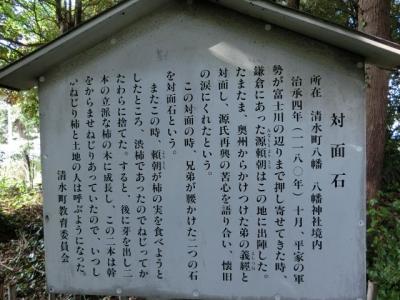 対面石
所在　清水町八幡　八幡神社境内
治承四年（一一八〇年）十月、平家の軍
勢が富士川の辺りまで押し寄せてきた時、
鎌倉にあった源頼朝はこの地に出陣した。
たまたま、奥州からかけつけた弟の義経と
対面し、源氏再興の苦心を語り合い、懐旧
の涙にくれたという。
この対面の時、兄弟が腰かけた二つの石
を対面石という。
またこの時、頼朝が柿の実を食べようと
したところ、渋柿であったのでねじってか
たわらに捨てた。すると、後に芽を出し二
本の立派な柿の木に成長し、この二本は幹
をからませねじりあっていたので、いつし
かねじり柿と土地の人は呼ぶようになった。
清水町教育委員会